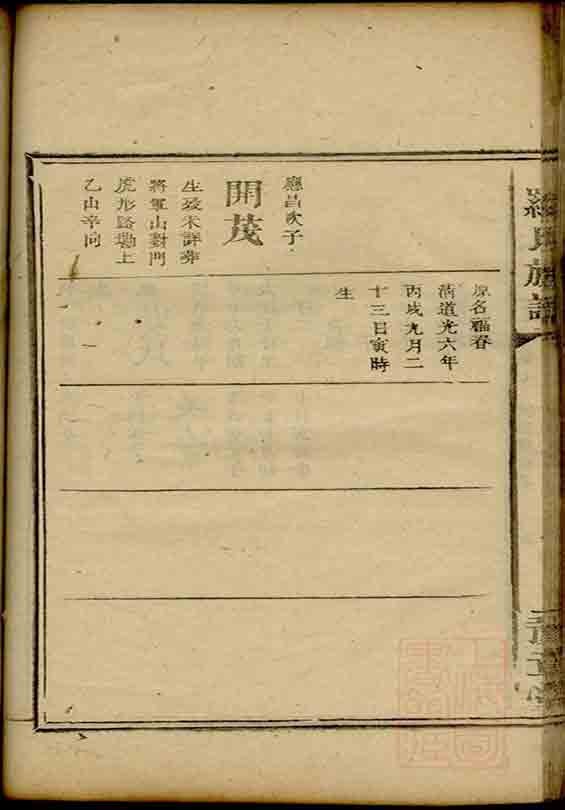 羅氏族譜
應昌次子
開茂
生歿未詳葬
將軍山對門
虎形路墈上
乙山辛向
原名福春
清道光六年
丙戌九月二
十三日寅時
生